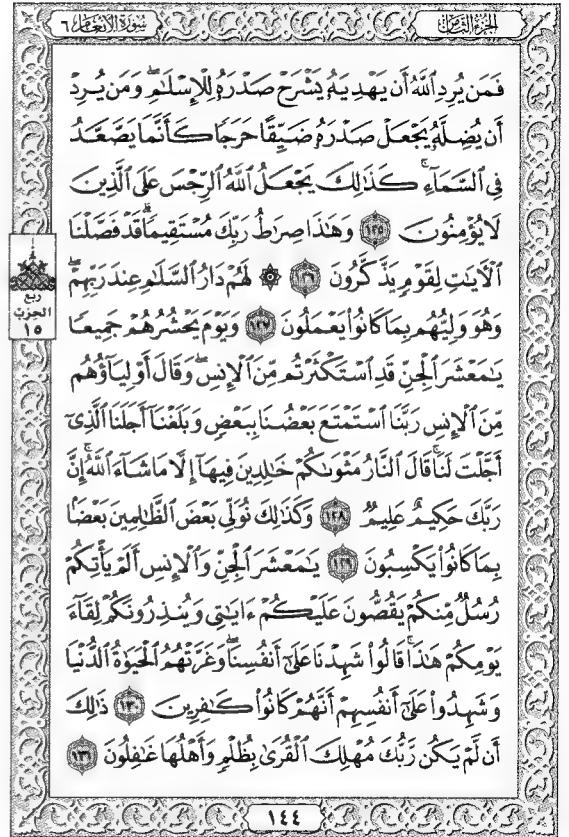 سُورَةُ الأَنْعَامِ ٦
الجُزْءُ الثَّامِنُ
فَمَن يُرِدِ ٱللَّهُ أَن يَهْدِيَهُۥ يَشْرَحْ صَدْرَهُۥ لِلْإِسْلَـٰمِ ۖ وَمَن يُرِدْ
أَن يُضِلَّهُۥ يَجْعَلْ صَدْرَهُۥ ضَيِّقًا حَرَجًا كَأَنَّمَا يَصَّعَّدُ
فِى ٱلسَّمَآءِ ۚ كَذَٰلِكَ يَجْعَلُ ٱللَّهُ ٱلرِّجْسَ عَلَى ٱلَّذِينَ
لَا يُؤْمِنُونَ ١٢٥ وَهَـٰذَا صِرَٰطُ رَبِّكَ مُسْتَقِيمًا ۗ قَدْ فَصَّلْنَا
ٱلْـَٔايَـٰتِ لِقَوْمٍ يَذَّكَّرُونَ ١٢٦ ۞ لَهُمْ دَارُ ٱلسَّلَـٰمِ عِندَ رَبِّهِمْ ۖ
وَهُوَ وَلِيُّهُم بِمَا كَانُوا۟ يَعْمَلُونَ ١٢٧ وَيَوْمَ يَحْشُرُهُمْ جَمِيعًا
يَـٰمَعْشَرَ ٱلْجِنِّ قَدِ ٱسْتَكْثَرْتُم مِّنَ ٱلْإِنسِ ۖ وَقَالَ أَوْلِيَآؤُهُم
مِّنَ ٱلْإِنسِ رَبَّنَا ٱسْتَمْتَعَ بَعْضُنَا بِبَعْضٍ وَبَلَغْنَآ أَجَلَنَا ٱلَّذِىٓ
أَجَّلْتَ لَنَا ۚ قَالَ ٱلنَّارُ مَثْوَىٰكُمْ خَـٰلِدِينَ فِيهَآ إِلَّا مَا شَآءَ ٱللَّهُ ۗ إِنَّ
رَبَّكَ حَكِيمٌ عَلِيمٌ ١٢٨ وَكَذَٰلِكَ نُوَلِّى بَعْضَ ٱلظَّـٰلِمِينَ بَعْضًۢا
بِمَا كَانُوا۟ يَكْسِبُونَ ١٢٩ يَـٰمَعْشَرَ ٱلْجِنِّ وَٱلْإِنسِ أَلَمْ يَأْتِكُمْ
رُسُلٌ مِّنكُمْ يَقُصُّونَ عَلَيْكُمْ ءَايَـٰتِى وَيُنذِرُونَكُمْ لِقَآءَ
يَوْمِكُمْ هَـٰذَا ۚ قَالُوا۟ شَهِدْنَا عَلَىٰٓ أَنفُسِنَا ۖ وَغَرَّتْهُمُ ٱلْحَيَوٰةُ ٱلدُّنْيَا
وَشَهِدُوا۟ عَلَىٰٓ أَنفُسِهِمْ أَنَّهُمْ كَانُوا۟ كَـٰفِرِينَ ١٣٠ ذَٰلِكَ
أَن لَّمْ يَكُن رَّبُّكَ مُهْلِكَ ٱلْقُرَىٰ بِظُلْمٍ وَأَهْلُهَا غَـٰفِلُونَ ١٣١
ربع
الحزب
١٥
١٤٤